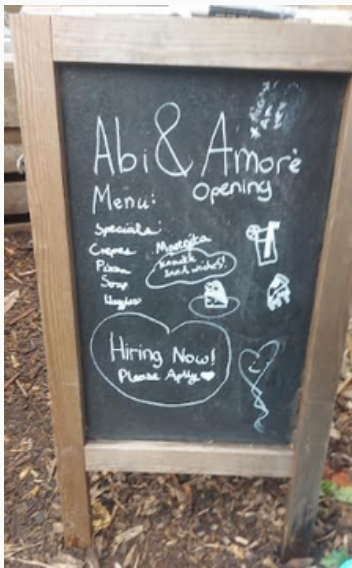 Abi & Amorè
Opening
Menu:
Specials:
Crepes
Pizza
Soup
Margeita
sandwiches!
Hiring Now!
Please Aplly